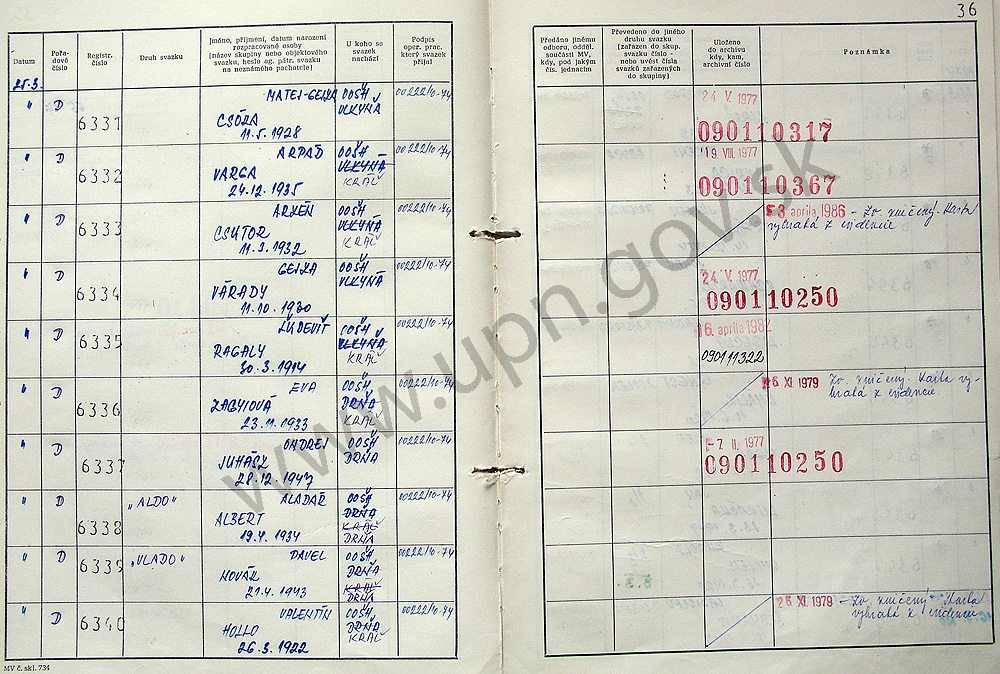 36
Datum
Pořa-
dové
číslo
Registr.
číslo
Druh svazku
Jméno, příjmení, datum narození
rozpracované osoby
(název skupiny nebo objektového
svazku, heslo ag. pátr. svazku
na neznámého pachatele)
U koho se
svazek
nachází
Podpis
oper. prac.
který svazek
přijal
Předáno jinému
odboru, odděl.
součásti MV,
kdy, pod jakým
čís. jednacím
Převedeno do jiného
druhu svazku
(zařazen do skup.
svazku číslo -
nebo uvést čísla
svazků zařazených
do skupiny)
Uloženo
do archivu
kdy, kam,
archivní číslo
Poznámka
25.3.
" D 6331 MATEJ-GEJZA OOŠH 00222/10-74
CSÓRA VLKYŇA
11.5.1928
24. V. 1977
090110317
" D 6332 ARPAD OOŠH 00222/10-74
VARGA VLKYŇA
24.12.1935 KRÁĽ
19. VIII. 1977
090110367
" D 6333 OOŠH 00222/10-74
CSUTOR VLKYŇA
11.3.1932 KRÁĽ
3 apríla 1986 - Zv. zničený. Karta
vybratá z evidence
" D 6334 GEJZA OOŠH 00222/10-74
VÁRADY VLKYŇA
11.10.1930
24. V. 1977
090110250
" D 6335 ĽUDEVÍT OOŠH 00222/10-74
RAGALY VLKYŇA
30.3.1914 KRÁĽ
16. apríla 1982
090111322
" D 6336 EVA OOŠH 00222/10-74
ZAGYIOVÁ DRŇA
23.11.1933 KRÁĽ
26 XI. 1979 Zv. zničený. Karta vy-
bratá z evidence.
" D 6337 ONDREJ OOŠH 00222/10-74
JUHÁSZ DRŇA
28.12.1947
-7 II. 1977
090110250
" D 6338 „ALDO" ALADÁR OOŠH 00222/10-74
ALBERT DRŇA
19.4.1934 KRÁĽ
DRŇA
" D 6339 „VLADO" PAVEL OOŠH 00222/10-74
NOVÁK DRŇA
21.4.1943 KRÁĽ
DRŇA
" D 6340 VALENTÍN OOŠH 00222/10-74
HOLLO DRŇA
26.3.1922 KRÁĽ
26 XI. 1979 - Zv. zničený - Karta
vybratá z evidence
MV č. skl. 734
www.upn.gov.sk